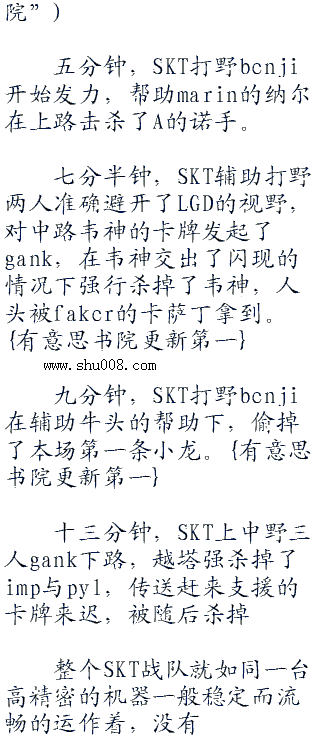 院”)
五分钟，SKT打野bcnji
开始发力，帮助marin的纳尔
在上路击杀了A的诺手。
七分半钟，SKT辅助打野
两人准确避开了LGD的视野，
对中路韦神的卡牌发起了
gank，在韦神交出了闪现的
情况下强行杀掉了韦神，人
头被fakcr的卡萨丁拿到。
{有意思书院更新第一}
www.shu008.com
九分钟，SKT打野bcnji
在辅助牛头的帮助下，偷掉
了本场第一条小龙。{有意思
书院更新第一}
十三分钟，SKT上中野三
人gank下路，越塔强杀掉了
imp与pyl，传送赶来支援的
卡牌来迟，被随后杀掉
整个SKT战队就如同一台
高精密的机器一般稳定而流
畅的运作着，没有